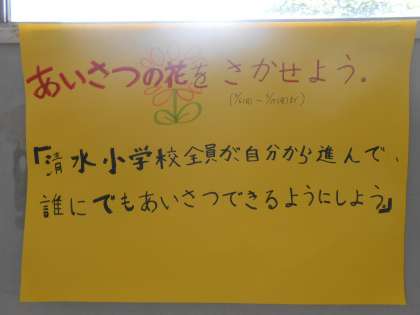 あいさつの花をさかせよう。
「清水小学校全員が自分から進んで、
誰にでもあいさつできるようにしよう。」